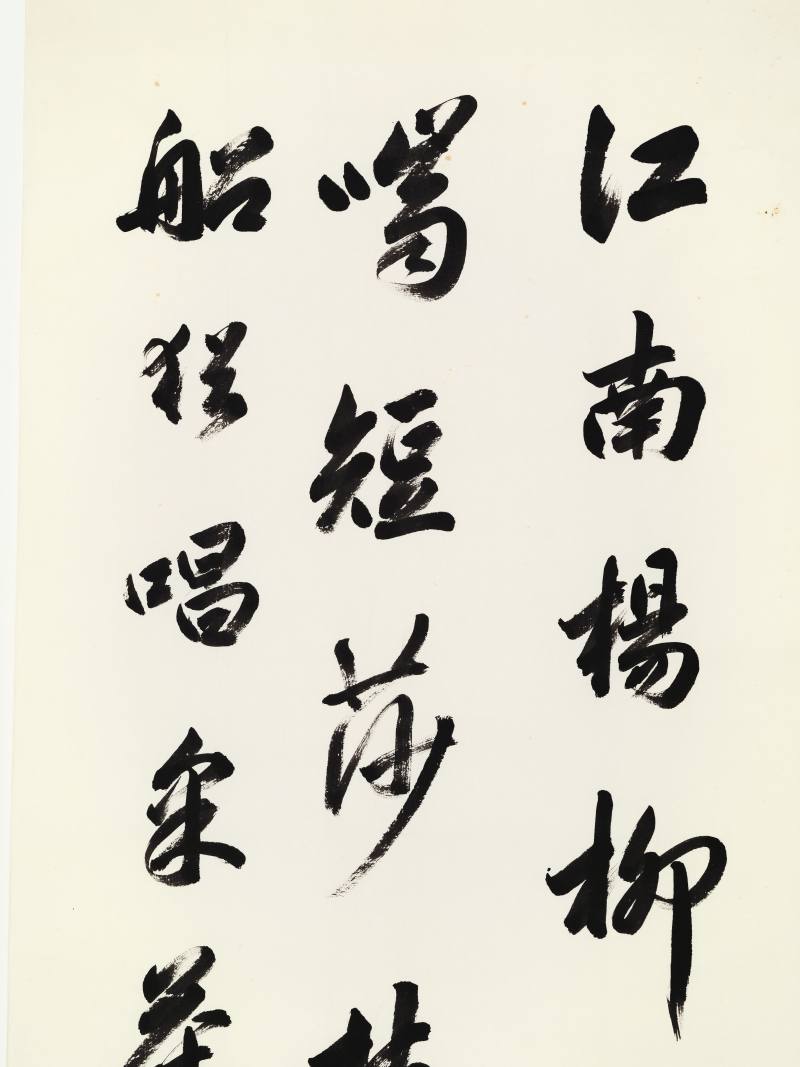 江南楊柳
嘴短莎
船猶唱采